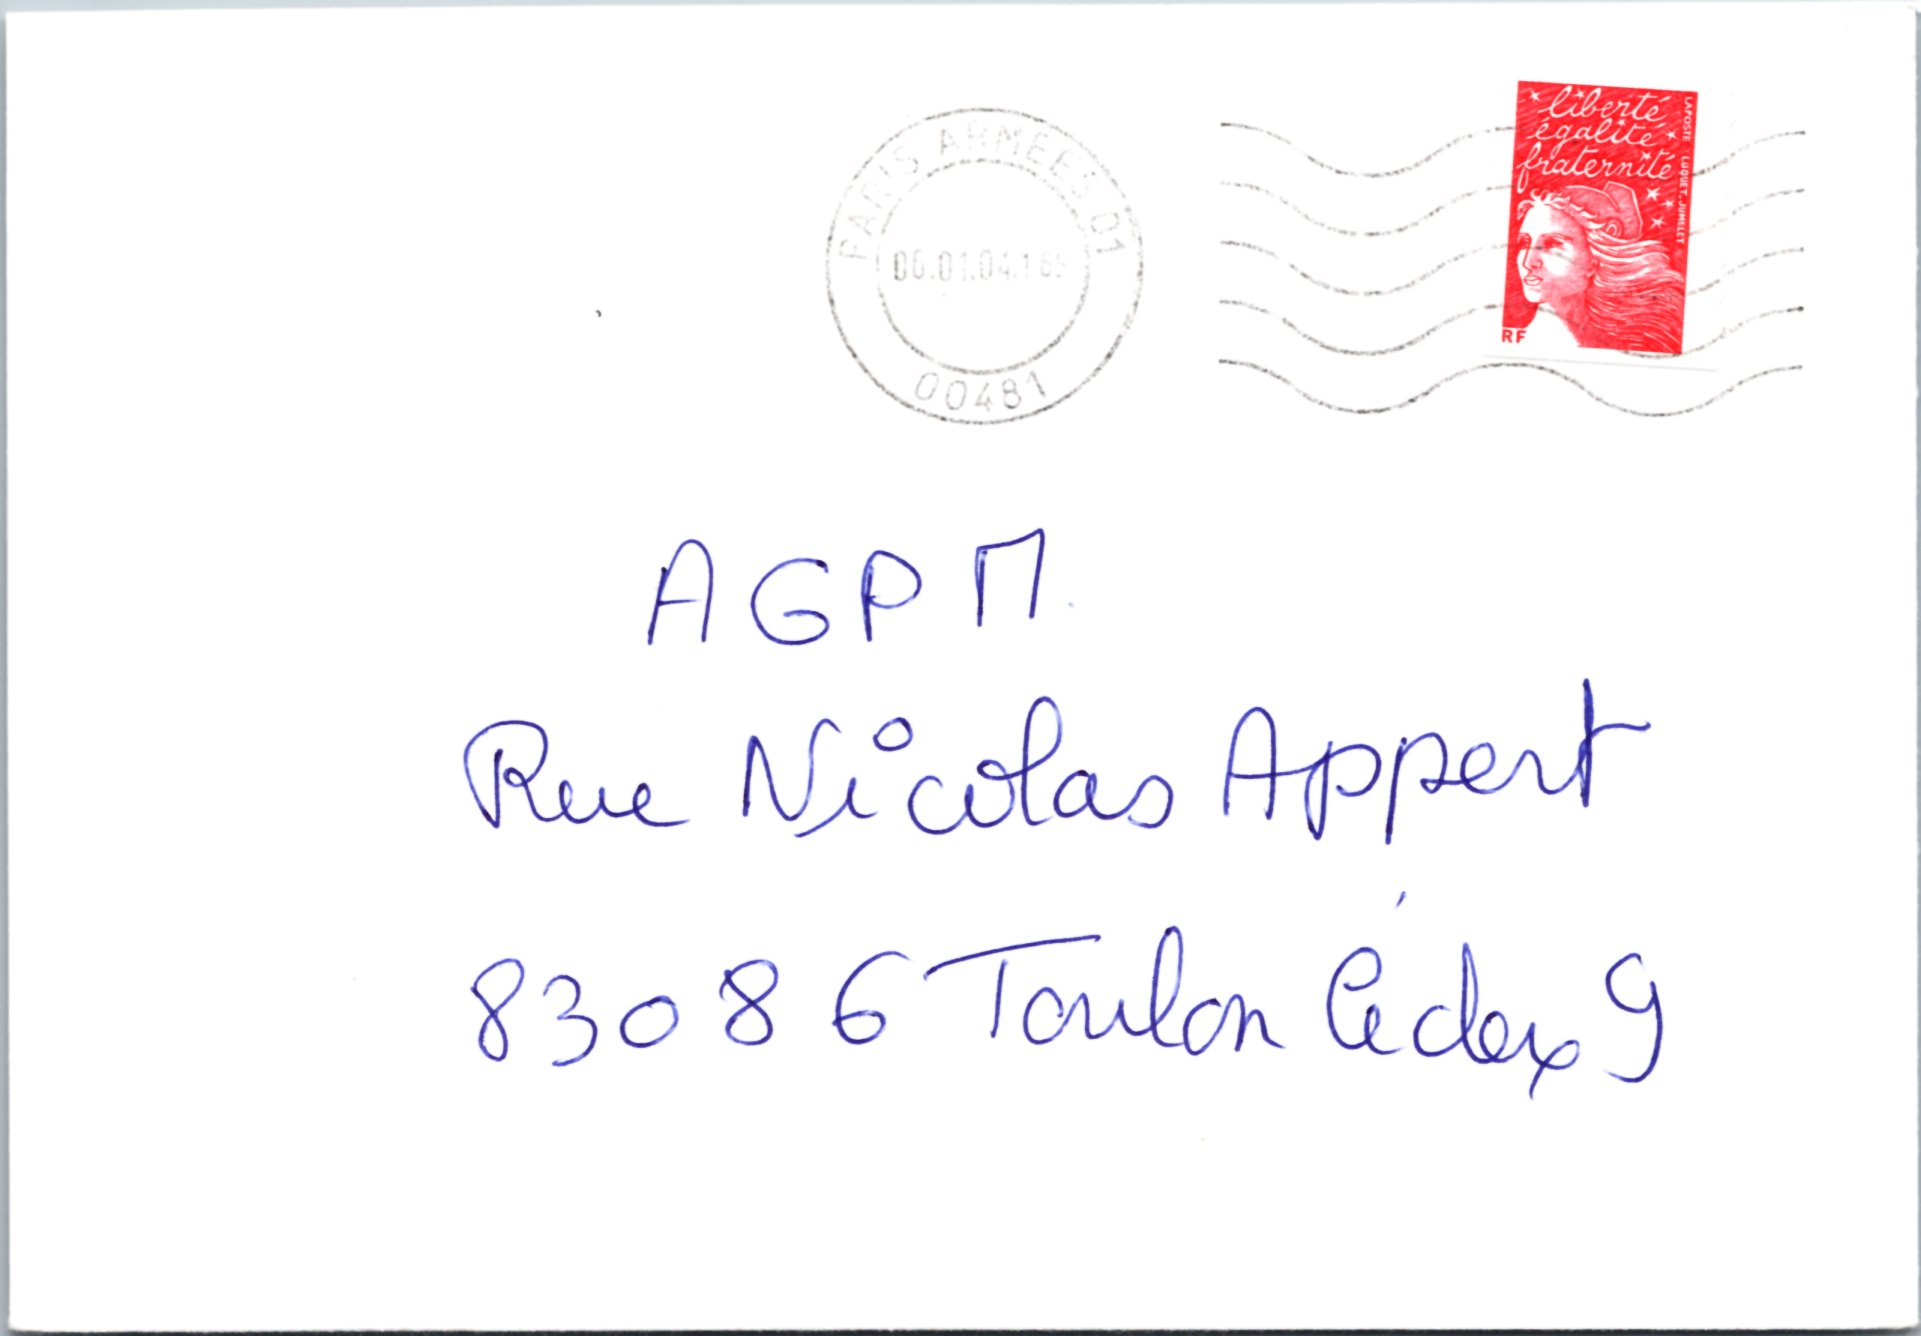 PARIS ARMEES 01
00481
liberté
égalité
fraternité
LA POSTE LUQUET-JUMELET
RF
AGPM.
Rue Nicolas Appert
83086 Toulon Cédex 9